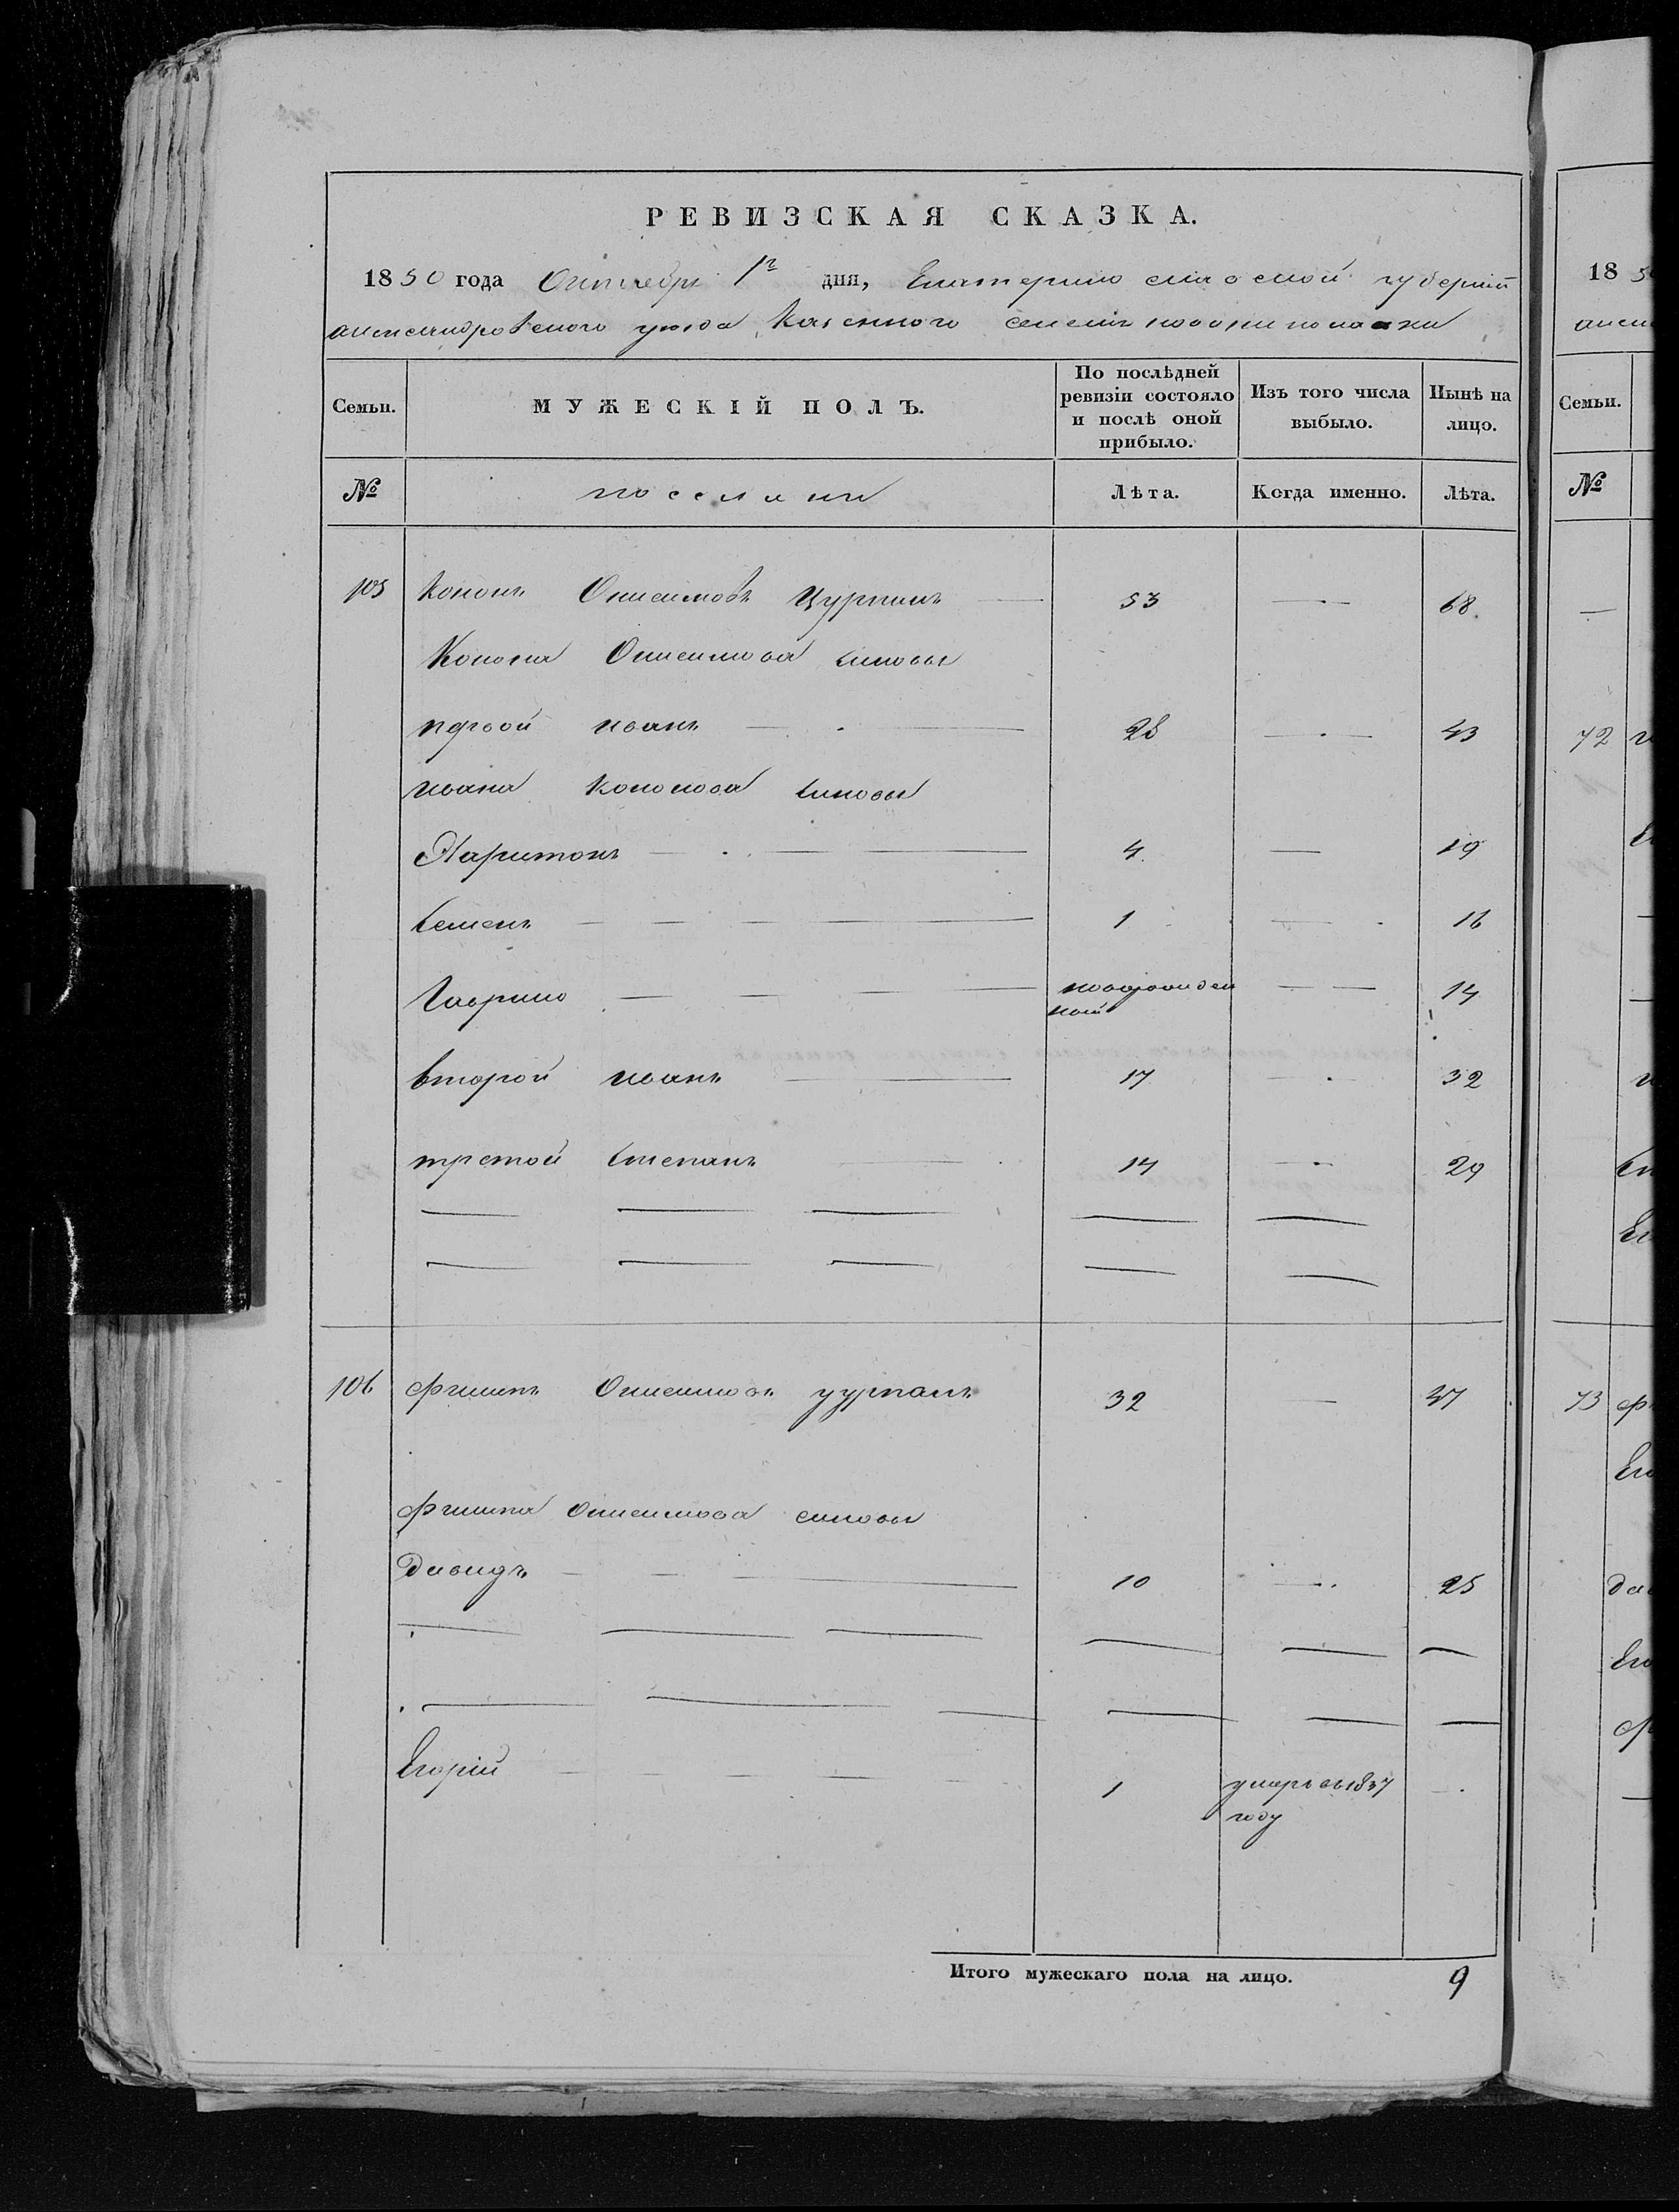 РЕВИЗСКАЯ СКАЗКА.
1850 года Октября 1го дня, Екатеринославской губернии
александровского уезда казенного селения новониколаевки
Семьи.
МУЖЕСКІЙ ПОЛЪ.
По послѣдней ревизіи состояло и послѣ оной прибыло.
Изъ того числа выбыло.
Нынѣ на лицо.
№ поселяни Лѣта. Когда именно. Лѣта.
105 Кононъ Онисимовъ Цурпалъ — 53 — 68
Конона Онисимова синовы
первой иванъ — 28 — 43
ивана Кононова синовы
Харитонъ — 4 — 19
Семенъ — 1 — 16
Гаврило — новорожден — 14
ной
второй иванъ — 17 — 32
третой Степанъ — 14 — 29
106 филипъ Онисимовъ цурпалъ 32 — 47
филипа Онисимова синовы
Давидъ — 10 — 25
Егорій — 1 умеръ въ 1837 —
году
Итого мужескаго пола на лицо. 9
18 5
Семьи.
№
72
73